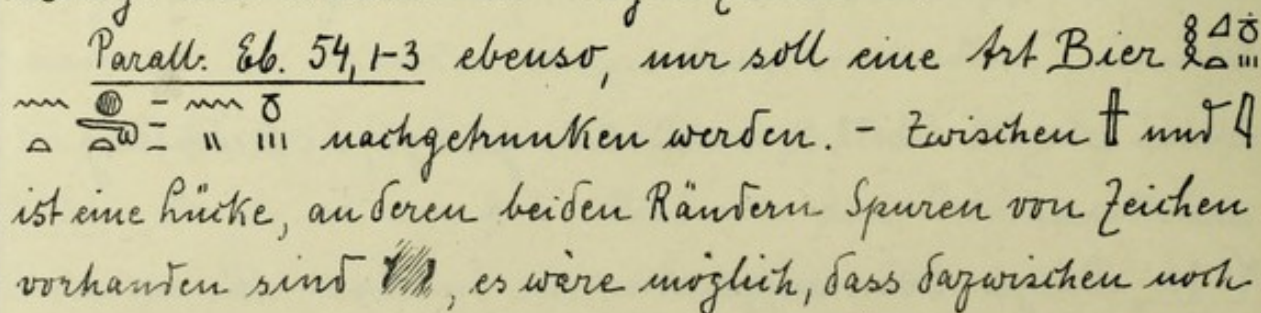 Parall: Eb. 54, 1-3 ebenso, nur soll eine Art Bier
nachgetrunken werden. - Zwischen und
ist eine Lücke, an deren beiden Rändern Spuren von Zeichen
vorhanden sind, es wäre möglich, dass dazwischen noch